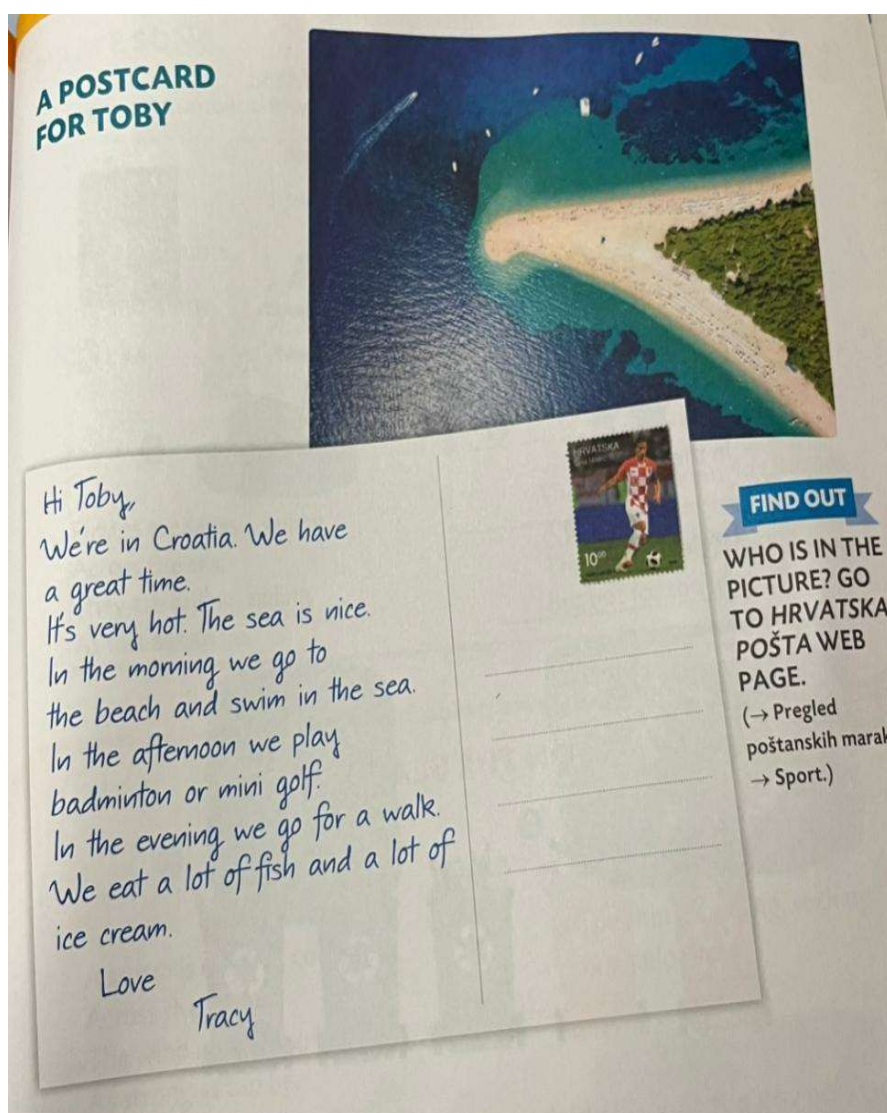 A POSTCARD
FOR TOBY
Hi Toby,
We're in Croatia. We have
a great time.
It's very hot. The sea is nice.
In the morning we go to
the beach and swim in the sea.
In the afternoon we play
badminton or mini golf.
In the evening we go for a walk.
We eat a lot of fish and a lot of
ice cream.
Love
Tracy
HRVATSKA
10⁰⁰
FIND OUT
WHO IS IN THE
PICTURE? GO
TO HRVATSKA
POŠTA WEB
PAGE.
(→ Pregled
poštanskih marak
→ Sport.)